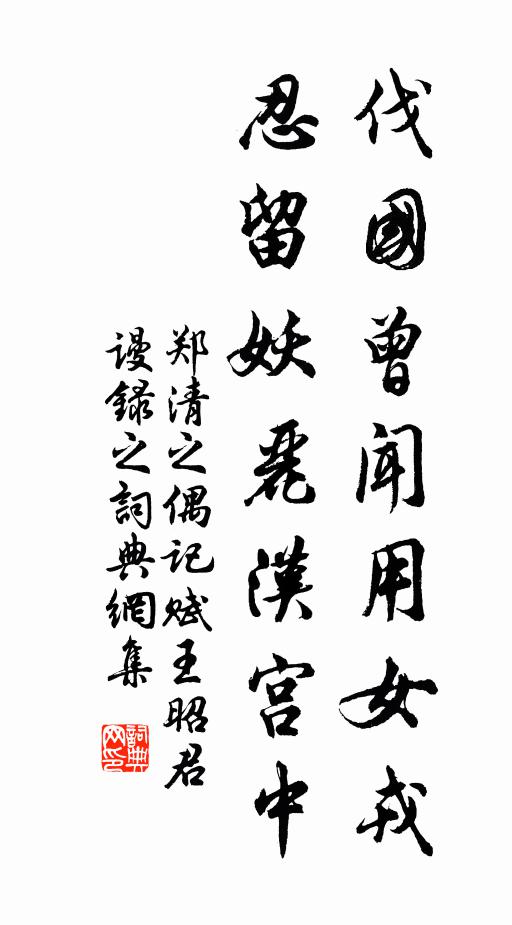 伐國曾聞用女戎
忍留妖麗漢宮中
郑清之偶记赋王昭君
謾錄之詞典網集
詞典網印